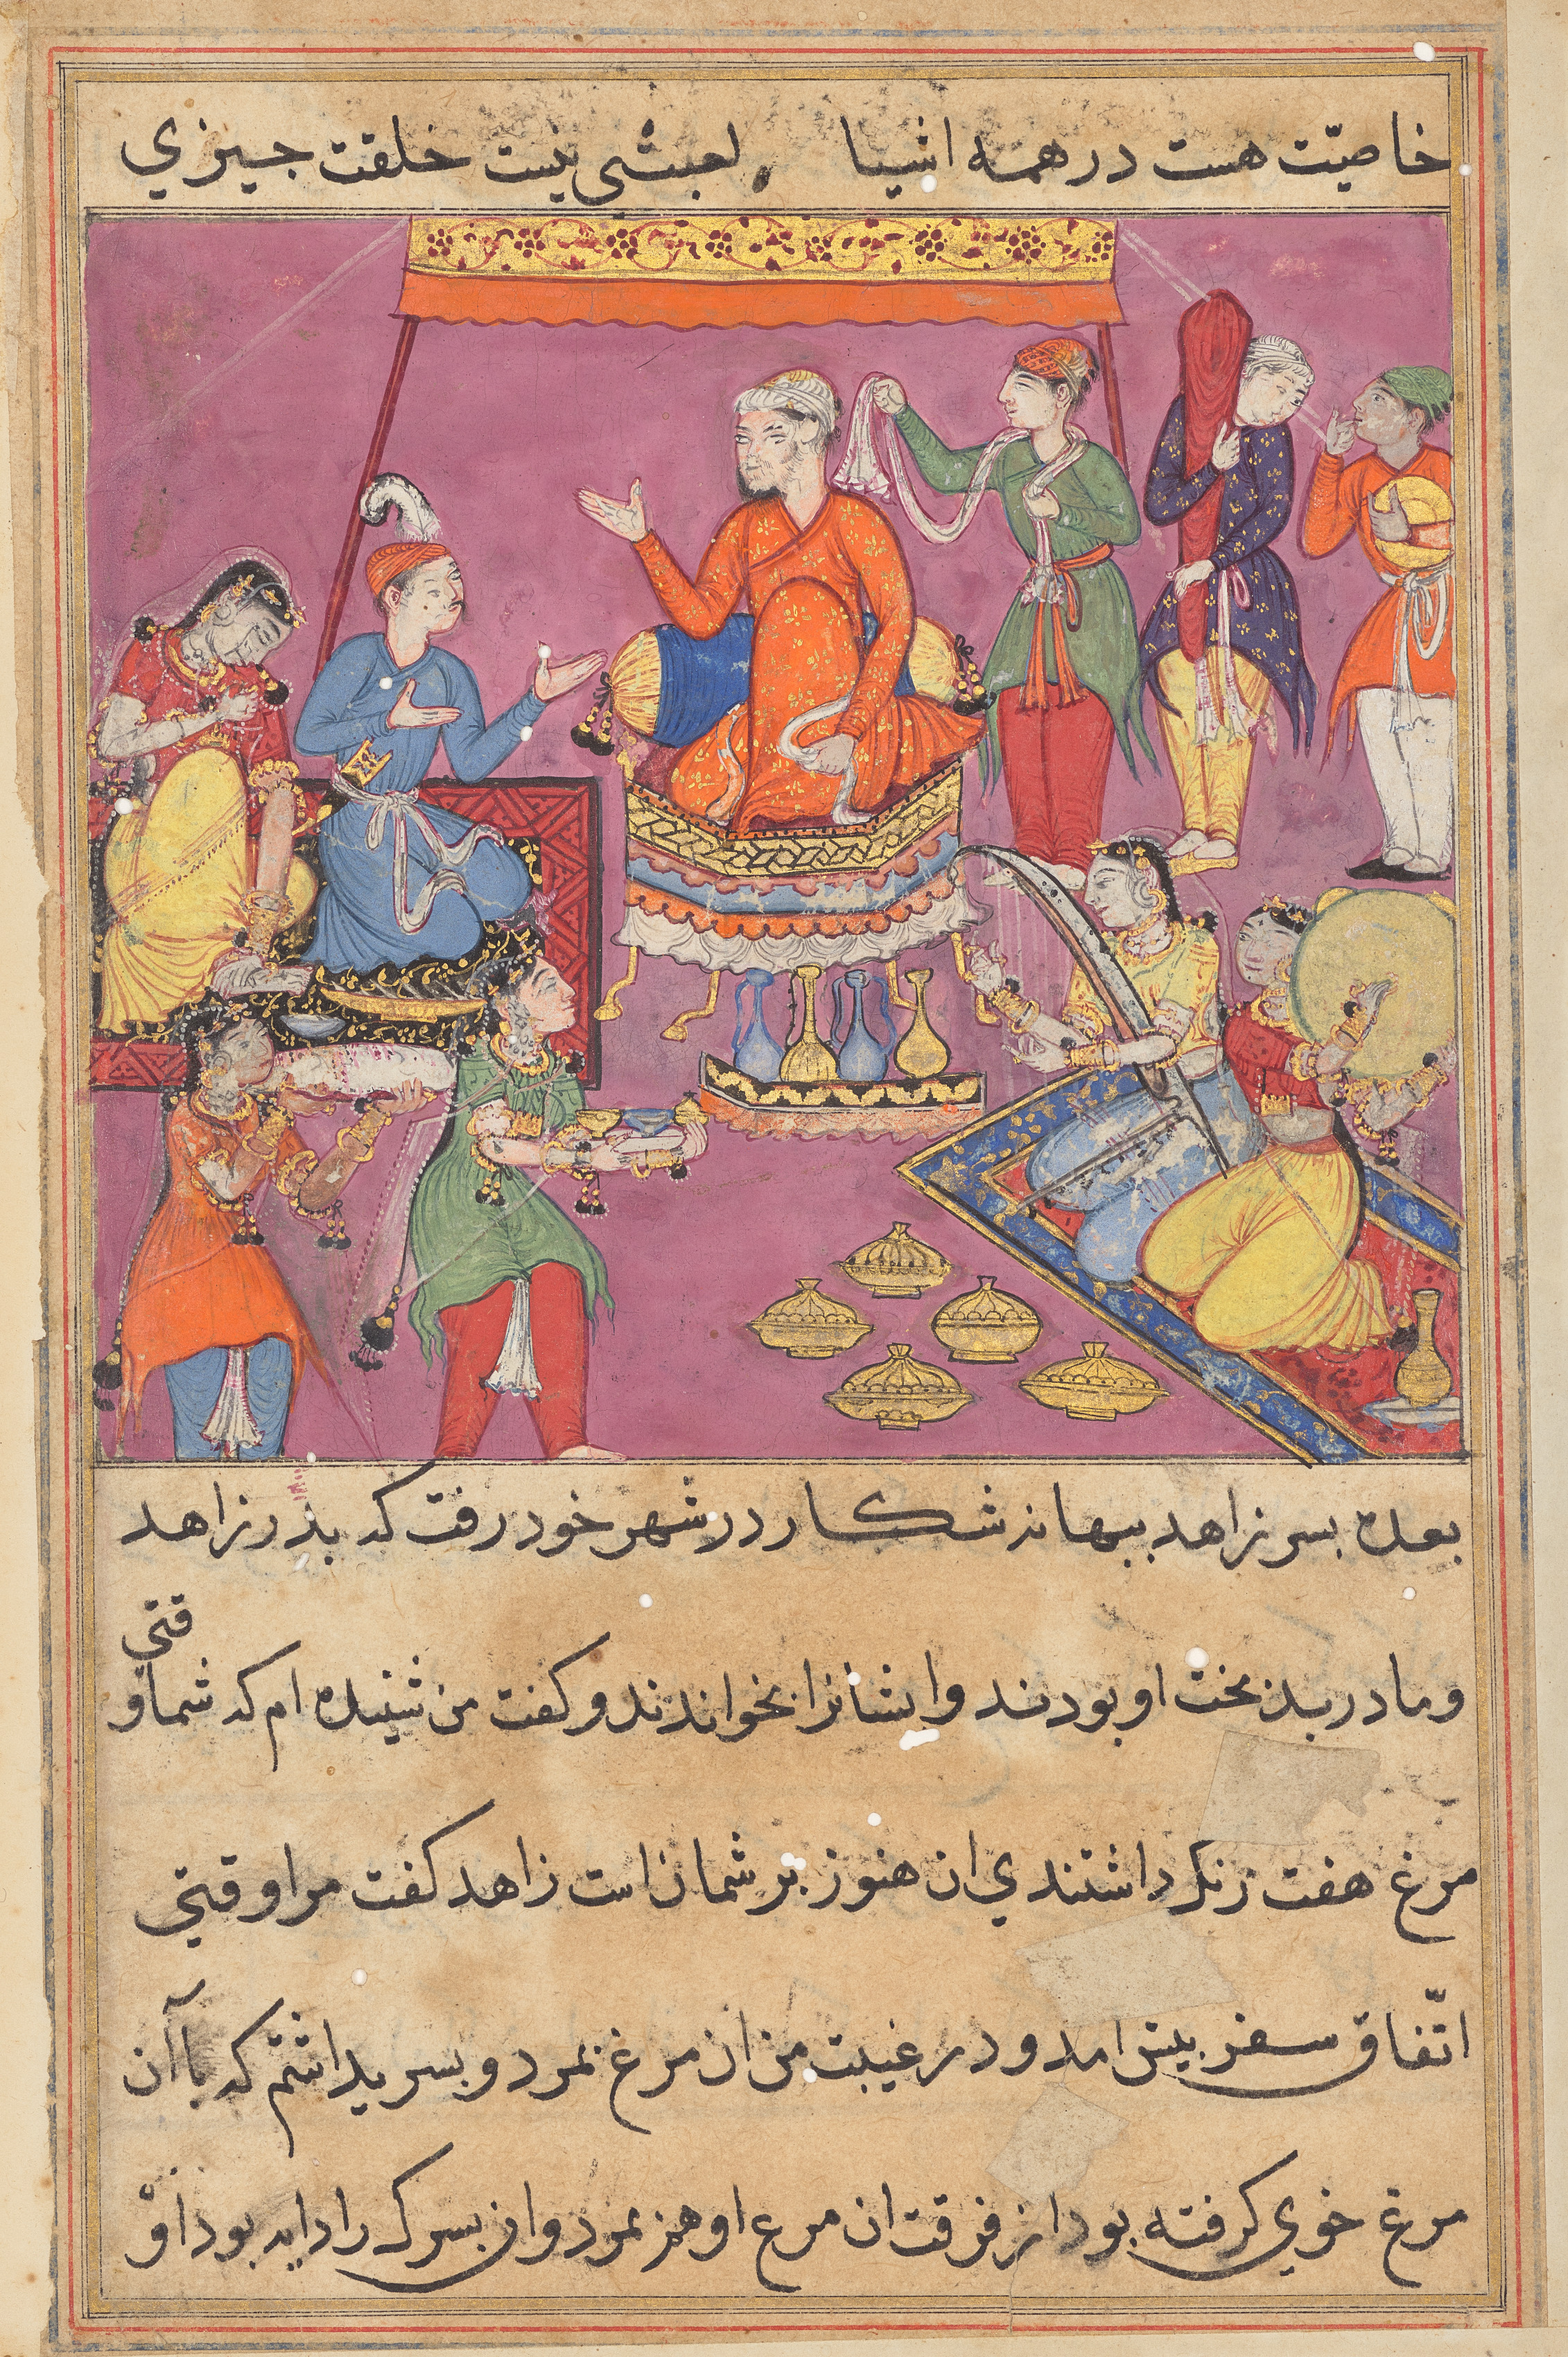 خاصیّت هست در همه اشیا لعبثی نیست خلقت جیزي
بعده بسر زاهد ببهانه شكار در شهر خود رفت كه بدر زاهد
و مادر بدبخت او بودند و ایشانرا بخواندند و كفت من شنیده ام كه شما وقتي
مرغ هفت رنك داشتندي ان هنوز بر شمایان است زاهد كفت مرا وقتي
اتّفاق سفر بیش امد و در غیبت من ان مرغ بمرد و بسر یداشتم كه باآن
مرغ خوي كرفته بود از فرقت ان مرع او هم بمرد و ان بسرك را دایه بود او